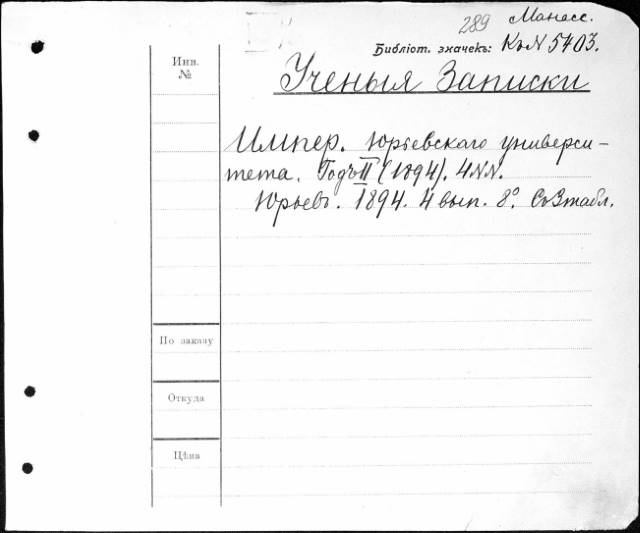 289 Манасс.
Библіот. значекъ: К. № 5403.
Инв.
№
Ученыя Записки
Импер. Юрьевскаго универси-
тета. Годъ II (1894). 4 №№.
Юрьевъ. 1894. 4 вып. 8°. Съ 3 табл.
По заказу
Откуда
Цѣна